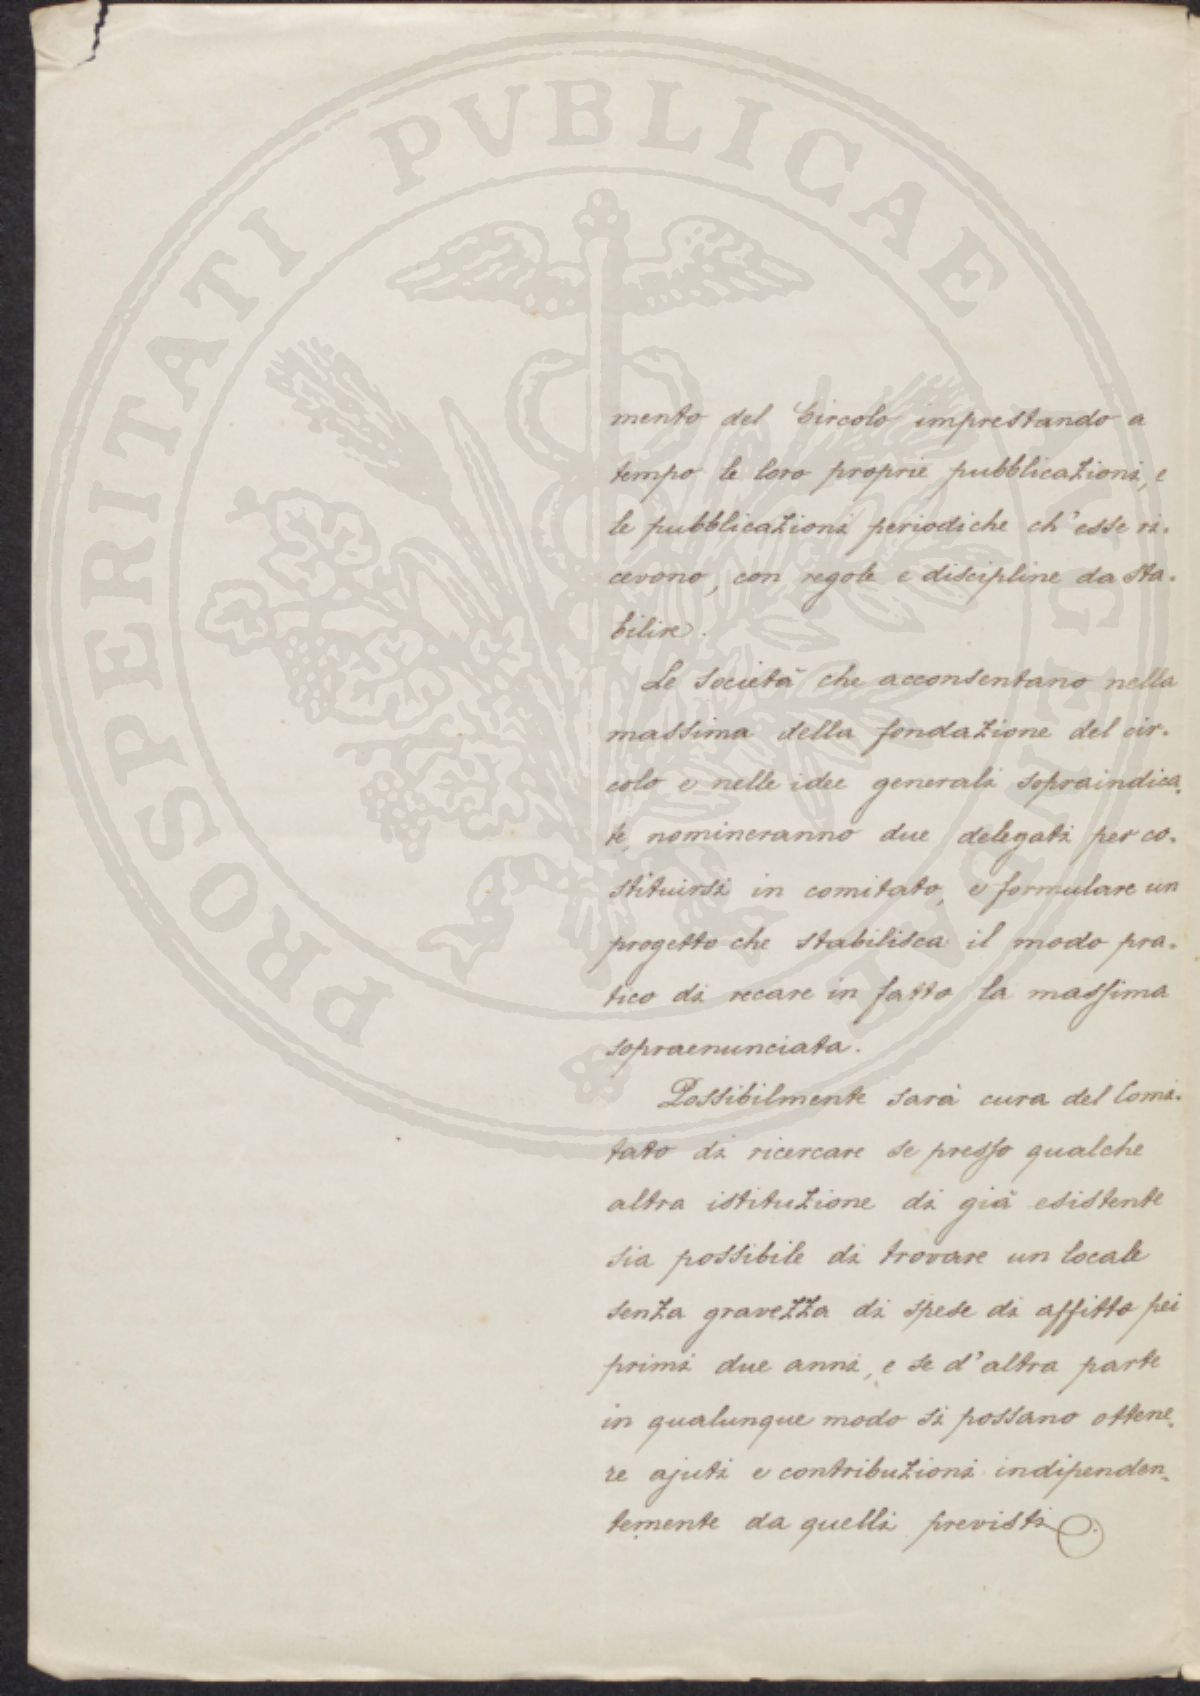 PROSPERITATI PUBLICAE AUGENDAE
mento del Circolo imprestando a
tempo le loro proprie pubblicazioni, e
le pubblicazioni periodiche ch'esse ri-
cevono, con regole e discipline da sta-
bilire.
Le Società che acconsentano nella
massima della fondazione del cir-
colo e nelle idee generali sopraindica-
te, nomineranno due delegati per co-
stituirsi in comitato, e formulare un
progetto che stabilisca il modo pra-
tico di recare in fatto la massima
sopraenunciata.
Possibilmente sarà cura del Comi-
tato di ricercare se presso qualche
altra istituzione di già esistente
sia possibile di trovare un locale
senza gravezza di spese di affitto pei
primi due anni, e se d'altra parte
in qualunque modo si possano ottene-
re ajuti e contribuzioni indipenden-
temente da quelli previsti.